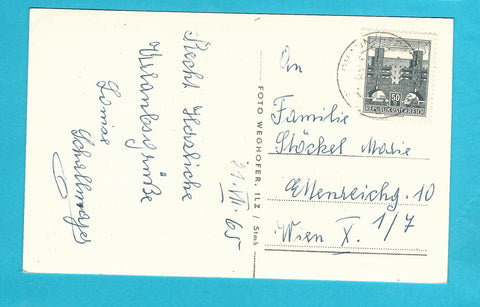 Recht Herzliche
Urlaubsgrüße
Louise
Schellmayer
21. VII. 65
FOTO WEGHOFER, ILZ / Stmk
50
REPUBLIK ÖSTERREICH
An
Familie
Stöckel Marie
Ettenreichg. 10
1/7
Wien X.